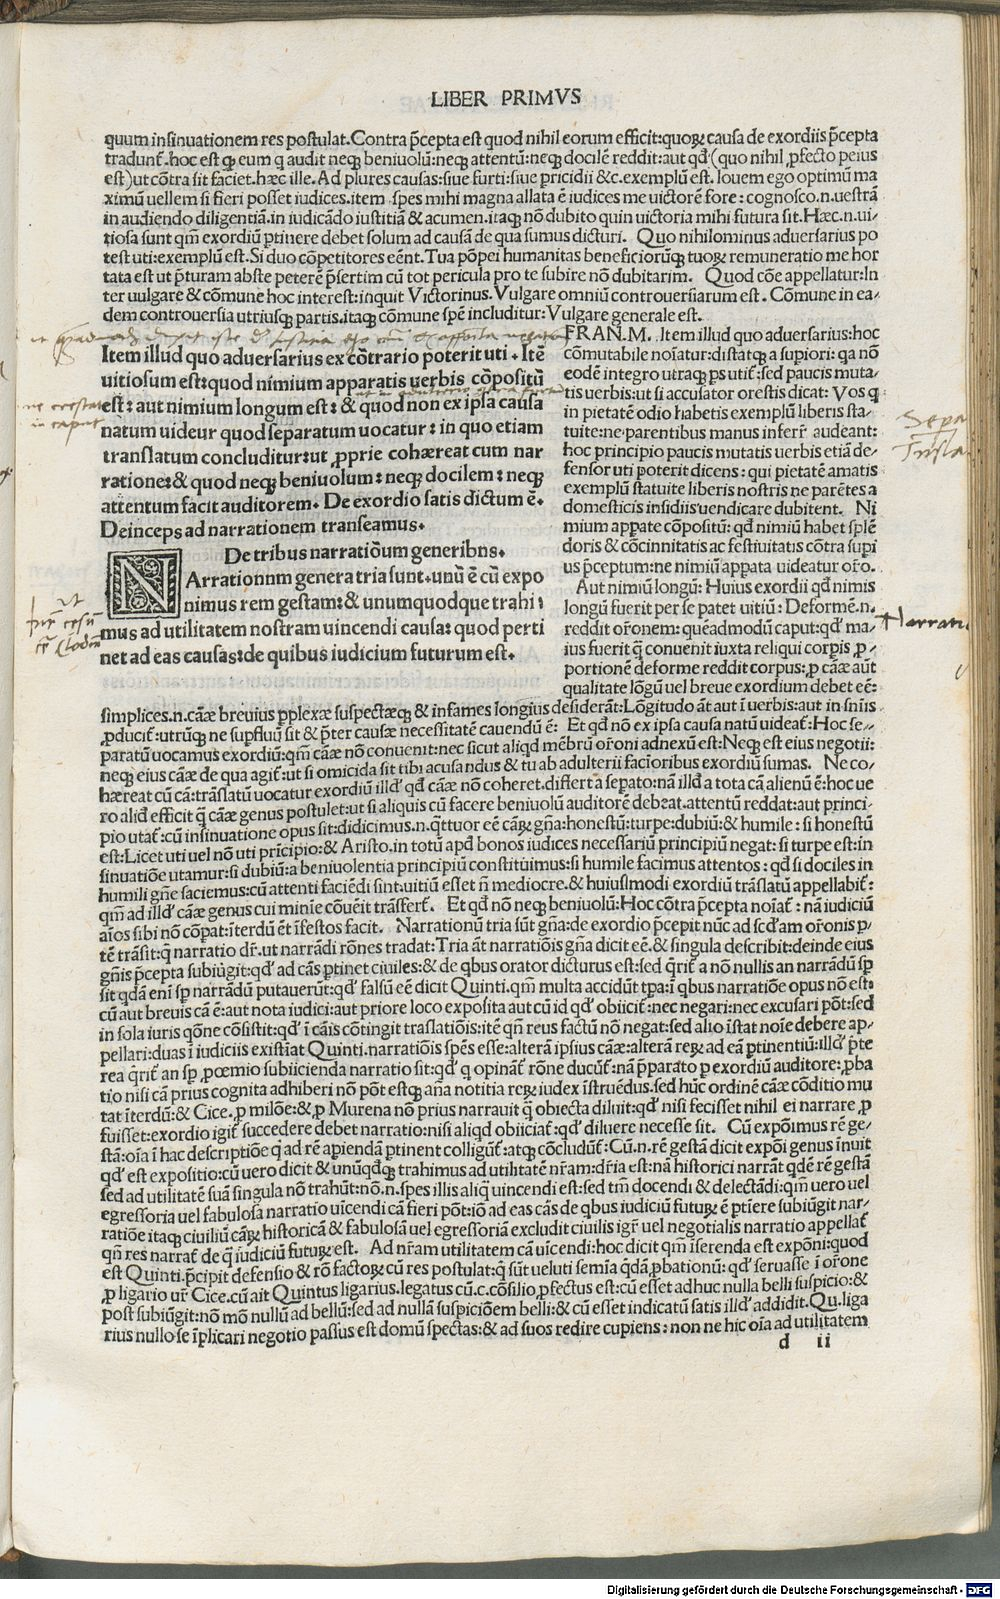 LIBER PRIMVS
quum insinuationem res postulat. Contra p̄cepta est quod nihil eorum efficit: quoꝝ causa de exordiis p̄cepta
tradunt̄. hoc est ꝙ eum q audit neqꝫ beniuolū: neqꝫ attentū: neqꝫ docilē reddit: aut qď (quo nihil ꝓfecto peius
est) ut cōtra sit faciet. hæc ille. Ad plures causas: siue furti: siue pricidii &c. exemplū est. Iouem ego optimū ma
ximū uellem si fieri posset iudices. item spes mihi magna allata ē iudices me uictorē fore: cognosco .n. uestrā
in audiendo diligentiā. in iudicādo iustitiā & acumen. itaqꝫ nō dubito quin uictoria mihi futura sit. Hæc .n. ui-
tiosa sunt qm̄ exordiū ꝑtinere debet solum ad causā de qua sumus dicturi. Quo nihilominus aduersarius po
test uti: exemplū est. Si duo cōpetitores eēnt. Tua pōpei humanitas beneficiorūqꝫ tuoꝝ remuneratio me hor
tata est ut p̄turam abste peterē p̄sertim cū tot pericula pro te subire nō dubitarim. Quod cōe appellatur: In
ter uulgare & cōmune hoc interest: inquit Victorinus. Vulgare omniū controuersiarum est. Cōmune in ea-
dem controuersia utriusqꝫ partis. itaqꝫ cōmune spē includitur: Vulgare generale est.
Item illud quo aduersarius ex cōtrario poterit uti. Itē
uitiosum est: quod nimium apparatis uerbis cōpositū
est: aut nimium longum est: & quod non ex ipsa causa
natum uideur quod separatum uocatur: in quo etiam
translatum concluditur: ut ꝓprie cohæreat cum nar
ratione: & quod neqꝫ beniuolum: neqꝫ docilem: neqꝫ
attentum facit auditorem. De exordio satis dictum ē.
Deinceps ad narrationem transeamus.
De tribus narratiōum generibns.
NArrationnm genera tria sunt. unū ē cū expo
nimus rem gestam: & unumquodque trahi:
mus ad utilitatem nostram uincendi causa: quod perti
net ad eas causas: de quibus iudicium futurum est.
FRAN.M. Item illud quo aduersarius: hoc
cōmutabile noīatur: distatqꝫ a supiori: qa nō
eodē integro utraqꝫ ps utit̄: sed paucis muta-
tis uerbis: ut si accusator orestis dicat: Vos q
in pietatē odio habetis exemplū liberis sta-
tuite: ne parentibus manus inferr̄ audeant:
hoc principio paucis mutatis uerbis etiā de-
fensor uti poterit dicens: qui pietatē amatis
exemplū statuite liberis nostris ne parētes a
domesticis insidiis uendicare dubitent. Ni
mium appate cōpositū: qď nimiū habet splē
doris & cōcinnitatis ac festiuitatis cōtra supi
us p̄ceptum: ne nimiū appata uideatur oīo.
Aut nimiū longū: Huius exordii qď nimis
longū fuerit per se patet uitiū: Deformē .n.
reddit or̄onem: quēadmodū caput: qď ma-
ius fuerit q̄ conuenit iuxta reliqui corpis ꝓ-
portionē deforme reddit corpus: ꝓ cāæ aūt
qualitate lōgū uel breue exordium debet eē:
simplices .n. cāæ breuius ꝑplexæ suspectæqꝫ & infames longius desiderāt: Lōgitudo āt aut ī uerbis: aut in sn̄iis
ꝓducit̄: utrūqꝫ ne supfluū sit & p̄ter causæ necessitatē cauendū ē: Et qď nō ex ipsa causa natū uideat̄: Hoc se-
paratū uocamus exordiū: qm̄ cāæ nō conuenit: nec sicut aliqď mēbrū or̄oni adnexū est: Neqꝫ est eius negotii:
neqꝫ eius cāæ de qua agit̄: ut si omicida sit tibi acusandus & tu ab adulterii facīoribus exordiū sumas. Ne co-
hæreat cū cā: trāslatū uocatur exordiū illď qď cāæ nō coheret. differt a sepato: nā illď a tota cā alienū ē: hoc ue
ro aliď efficit q̄ cāæ genus postulet: ut si aliquis cū facere beniuolū auditorē debeat. attentū reddat: aut princi-
pio utat̄: cū insinuatione opus sit: didicimus .n. q̄ttuor eē cāꝝ gn̄a: honestū: turpe: dubiū: & humile: si honestū
est: Licet uti uel nō uti prīcipio: & Aristo. in totū apď bonos iudices necessariū principiū negat: si turpe est: in
sinuatiōe utamur: si dubiū: a beniuolentia principiū constituimus: si humile facimus attentos: qď si dociles in
humili gn̄e faciemus: cū attenti faciēdi sint. uitiū esset n̄ mediocre. & huiusmodi exordiū trāslatū appellabit̄:
qm̄ ad illď cāæ genus cui minīe cōuēit trāsfert̄. Et qď nō neqꝫ beniuolū: Hoc cōtra p̄cepta noīat̄: nā iudiciū
aīos sibi nō cōpat: īterdū ēt īfestos facit. Narrationū tria sūt gn̄a: de exordio p̄cepit nūc ad scď'am or̄onis p-
tē trāsit: q̄ narratio dr̄. ut narrādi rōnes tradat: Tria āt narratiōis gn̄a dicit eē. & singula describit: deinde eius
gn̄is p̄cepta subiūgit: qď ad cās ꝑtinet ciuiles: & de qbus orator dicturus est: sed q̄rit̄ a nō nullis an narrādū sꝑ
sit qdā eni sꝑ narrādū putauerūt: qď falsū eē dicit Quinti. qm̄ multa accidūt tp̄a: ī qbus narratiōe opus nō est:
cū aut breuis cā ē: aut nota iudici: aut priore loco exposita aut cū id qď obiicit̄: nec negari: nec excusari pōt: sed
in sola iuris qōne cōsistit: qď ī cāis cōtingit traslatiōis: itē qn̄ reus factū nō negat: sed alio īstat noīe debere ap-
pellari: duas ī iudiciis existīat Quinti. narratiōis spēs esse: alterā ipsius cāæ: alterā reꝝ ad cā ꝑtinentiū: illď p̄te
rea q̄rit̄ an sꝑ ꝓoemio subiicienda narratio sit: qď q opinat̄ rōne ducūt̄: nā p̄parato ꝑ exordiū auditore: ꝓba
tio nisi cā prius cognita adhiberi nō pōt estqꝫ aīna notitia reꝝ iudex īstruēdus. sed hūc ordinē cāæ cōditio mu
tat īterdū: & Cice. ꝓ milōe: & ꝓ Murena nō prius narrauit q̄ obiecta diluit: qď nisi fecisset nihil ei narrare ꝓ
fuisset: exordio igit̄ succedere debet narratio: nisi aliqď obiiciat̄: qď diluere necesse sit. Cū expōimus rē ge-
stā: oīa ī hac descriptiōe q̄ ad rē apiendā ꝑtinent colligūt̄: atqꝫ cōcludūt̄: Cū .n. rē gestā dicit expōi genus īnuit
qď est expositio: cū uero dicit & unūqďqꝫ trahimus ad utilitatē nr̄am: dr̄ia est: nā historici narrāt qdē rē gestā
sed ad utilitatē suā singula nō trahūt: nō .n. spes illis aliq̄ uincendi est: sed tm̄ docendi & delectādi: qm̄ uero uel
egressoria uel fabulosa narratio uīcendi cā fieri pōt: iō ad eas cās de qbus iudiciū futuꝝ ē ꝑtīere subiūgit nar-
ratiōe itaqꝫ ciuiliū cāꝝ historicā & fabulosā uel egressoriā excludit ciuilis igr̄ uel negotialis narratio appellat̄
qn̄ res narrat̄ de q̄ iudiciū futuꝝ est. Ad nr̄am utilitatem cā uīcendi: hoc dicit qm̄ īserenda est expōni: quod
est Quinti. p̄cipit defensio & rō factoꝝ cū res postulat: q̄ sūt ueluti semīa qdā ꝓbationū: qď seruasse ī or̄one
ꝓ ligario ur̄ Cice. cū ait Quintus ligarius. legatus cū .c. cōsilio ꝓfectus est: cū esset adhuc nulla belli suspicio: &
post subiūgit: nō mō nullū ad bellū: sed ad nullā suspiciōem belli: & cū esset indicatū satis illď addidit. Qu. liga
rius nullo se īplicari negotio passus est domū spectas: & ad suos redire cupiens: non ne hic oīa ad utilitatem
d ii
Digitalisierung gefördert durch die Deutsche Forschungsgemeinschaft - DFG